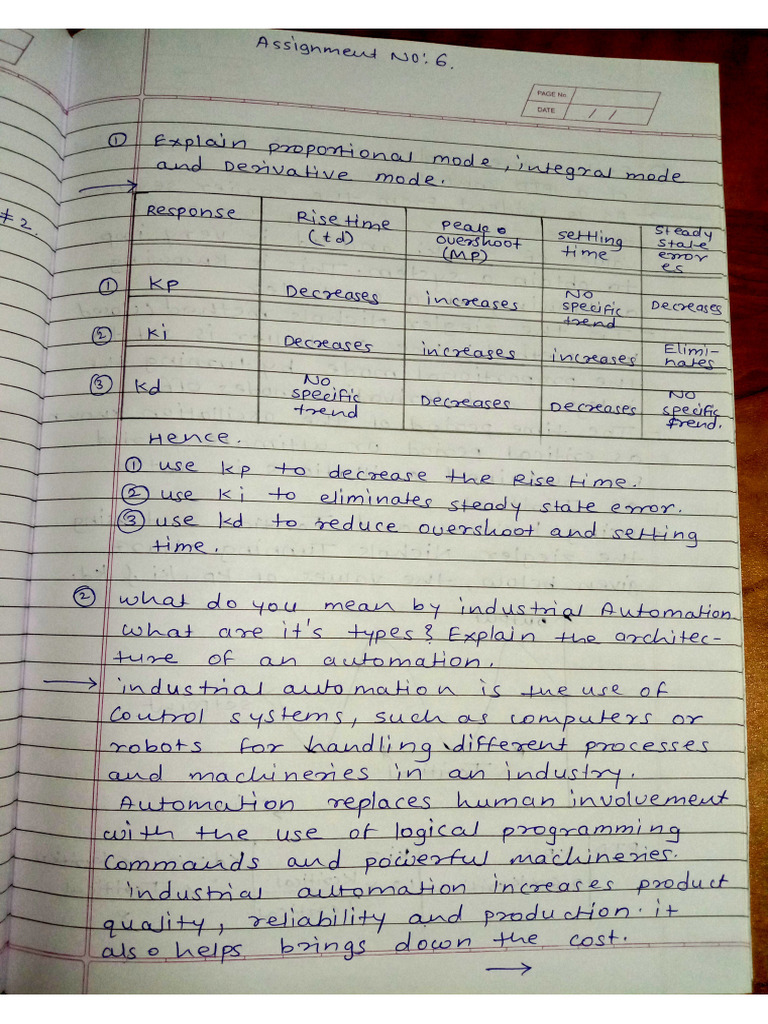 Assignment No: 6.
PAGE No.
DATE / /
① Explain proportional mode, integral mode
and Derivative mode.
≠ 2.
Response Rise time (td) Peak overshoot (MP) setting time steady state error es
① Kp Decreases increases No specific trend Decreases
② Ki Decreases increases increases Elimi-nates
③ Kd No specific trend Decreases Decreases No specific trend.
Hence.
① use kp to decrease the Rise time.
② use Ki to eliminates steady state error.
③ use kd to reduce overshoot and setting
time.
② What do you mean by industrial Automation
what are it's types? Explain the architec-
ture of an automation.
→ industrial automation is the use of
control systems, such as computers or
robots for handling different processes
and machineries in an industry.
Automation replaces human involvement
with the use of logical programming
commands and powerful machineries.
industrial automation increases product
quality, reliability and production. it
also helps brings down the cost.
→